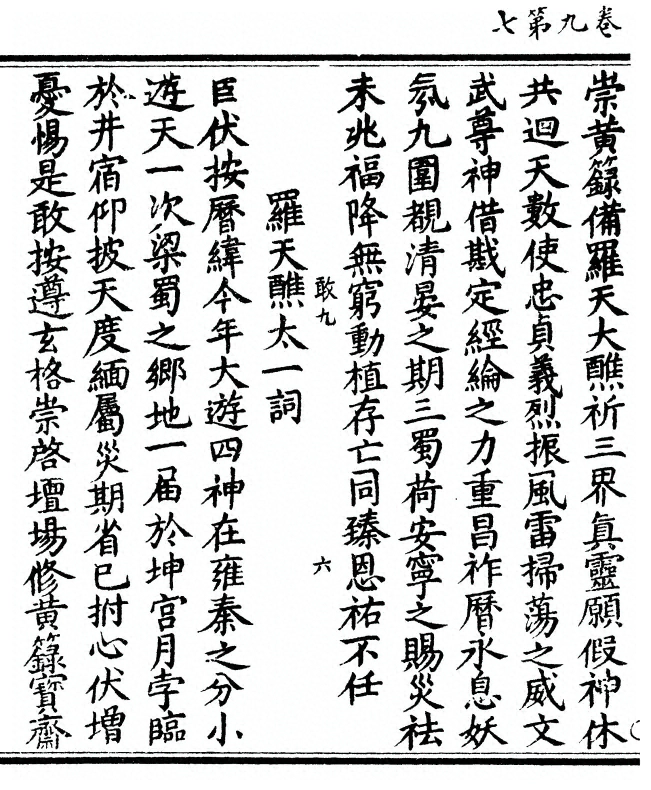 卷九第七
崇黃籙備羅天大醮祈三界眞靈願假神休
共迴天數使忠貞義烈振風雷掃蕩之威文
武尊神借戡定經綸之力重昌祚曆永息妖
氛九圍覩清晏之期三蜀荷安寧之賜災祛
未兆福降無窮動植存亡同臻恩祐不任
敢九
六
羅天醮太一詞
臣伏按曆緯今年大遊四神在雍秦之分小
遊天一次梁蜀之鄉地一届於坤宮月孛臨
於井宿仰披天度緬屬災期省已拊心伏增
憂惕是敢按遵玄格崇啓壇場修黃籙寶齋